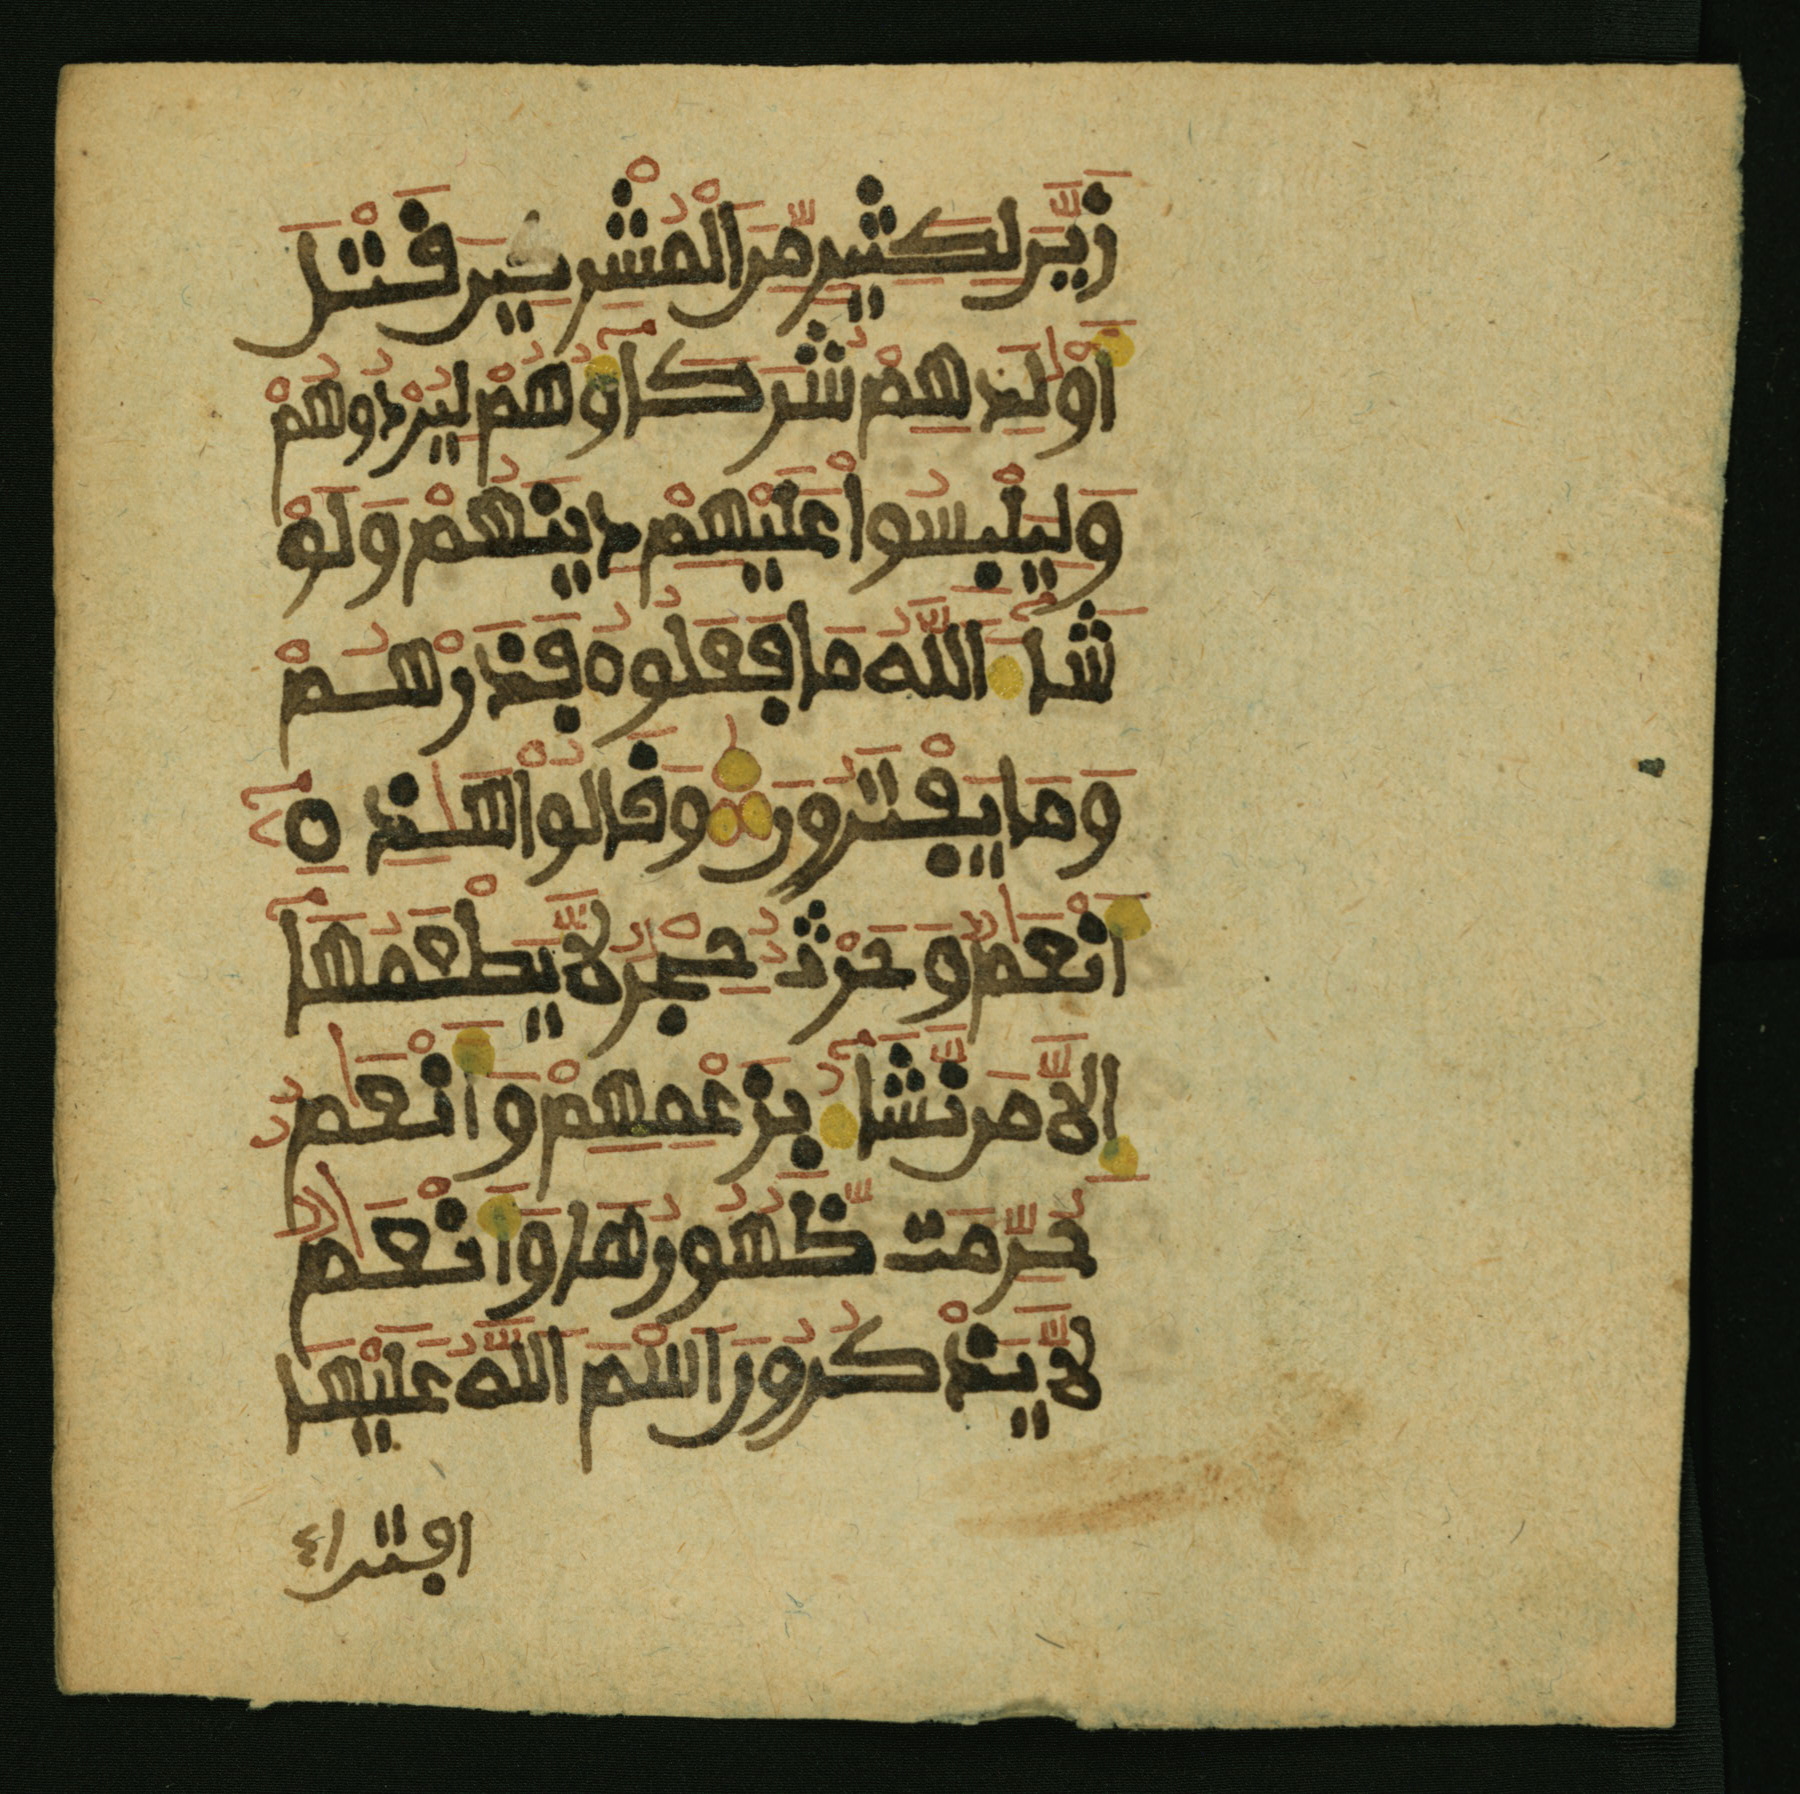 زَيَّنَ لِكَثِيرٍ مِّنَ الْمُشْرِكِينَ قَتْلَ
أَوْلَٰدِهِمْ شُرَكَآؤُهُمْ لِيُرْدُوهُمْ
وَلِيَلْبِسُوا عَلَيْهِمْ دِينَهُمْ وَلَوْ
شَآءَ اللَّهُ مَا فَعَلُوهُ فَذَرْهُمْ
وَمَا يَفْتَرُونَ وَقَالُوا هَٰذِهِ
أَنْعَٰمٌ وَحَرْثٌ حِجْرٌ لَّا يَطْعَمُهَآ
إِلَّا مَن نَّشَآءُ بِزَعْمِهِمْ وَأَنْعَٰمٌ
حُرِّمَتْ ظُهُورُهَا وَأَنْعَٰمٌ
لَّا يَذْكُرُونَ اسْمَ اللَّهِ عَلَيْهَا
افتراء